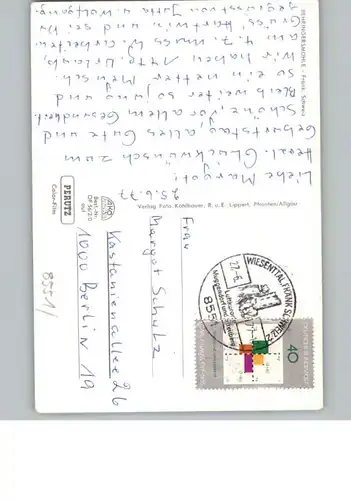 BEHRINGERSMÜHLE - Fränk. Schweiz
25.6.77
Liebe Margot!
Herzl. Glückwunsch zum
Geburtstag, alles Gute und
Schöne, vor allem Gesundheit.
Bleib weiter so jung und
so ein netter Mensch.
Wir haben 14tg. Urlaub,
am 4.7. muss W. arbeiten.
Grüss Martin, und sei Du
gegrüsst von Jutta u. Wolfgang.
Verlag Foto Kahlbauer, R. u. E. Lippert, Pfronten/Allgäu
Best.-Nr.
auf
PERUTZ
Color-Film
8551/
WIESENTTAL FRÄNK. SCHWEIZ 2
8551
40
Frau
Margot Schulz
Kastanienallee 26
1000 Berlin 19